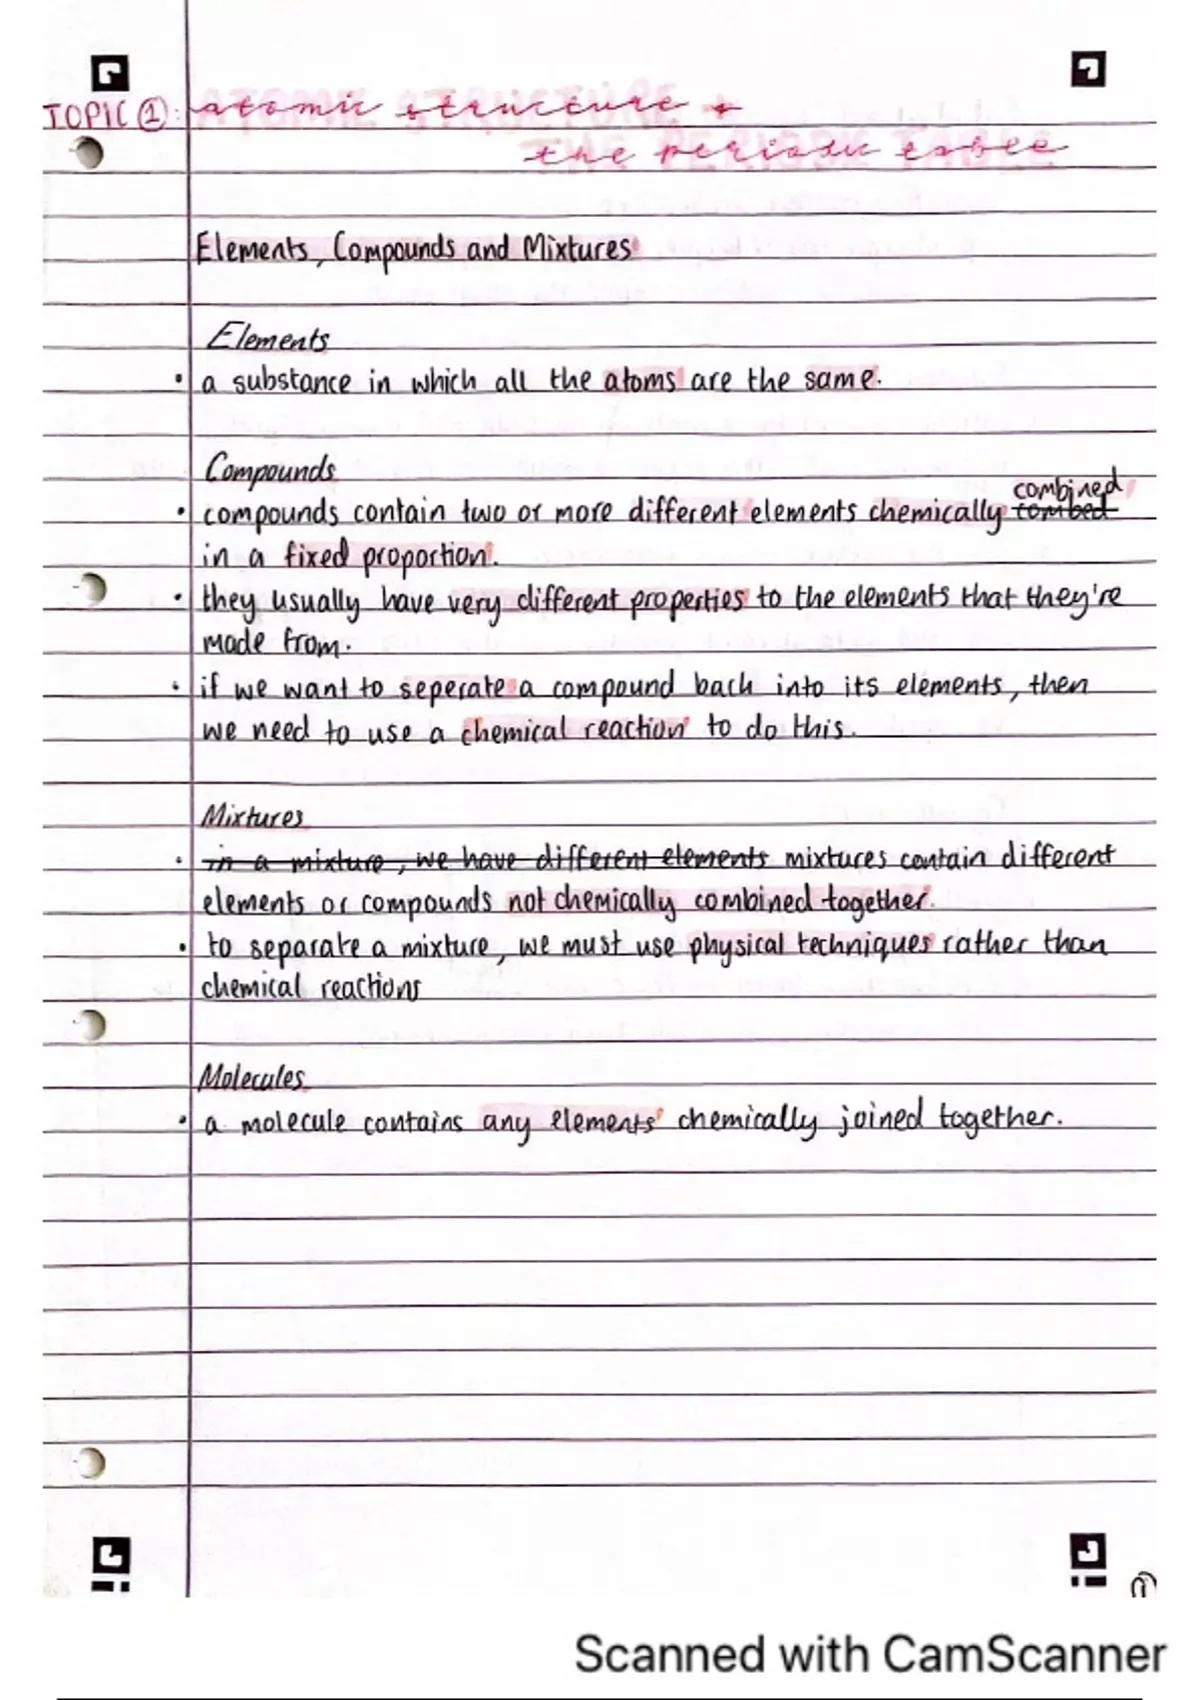 TOPIC ①: atomic structure +
the periodic table
Elements, Compounds and Mixtures
Elements
• a substance in which all the atoms are the same.
Compounds
combined
• compounds contain two or more different elements chemically combed
in a fixed proportion.
• they usually have very different properties to the elements that they're
made from.
• if we want to seperate a compound back into its elements, then
we need to use a chemical reaction to do this.
Mixtures
• in a mixture, we have different elements mixtures contain different
elements or compounds not chemically combined together.
• to separate a mixture, we must use physical techniques rather than
chemical reactions
Molecules
• a molecule contains any elements chemically joined together.
①
Scanned with CamScanner